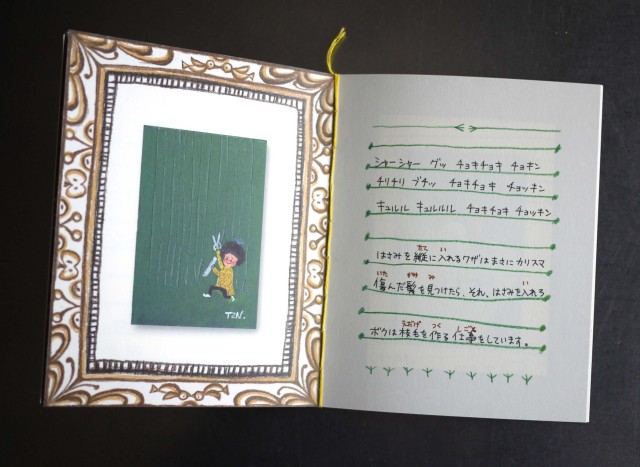 TZN.
シャーシャー グッ チョキチョキ チョキン
チリチリ プチッ チョキチョキ チョッキン
キュルル キュルルル チョキチョキ チョッキン
たて い
はさみを縦に入れるワザはまさにカリスマ
いた かみ み い
傷んだ髪を見つけたら、それ、はさみを入れろ
えだげ つく しごと
ボクは枝毛を作る仕事をしています。